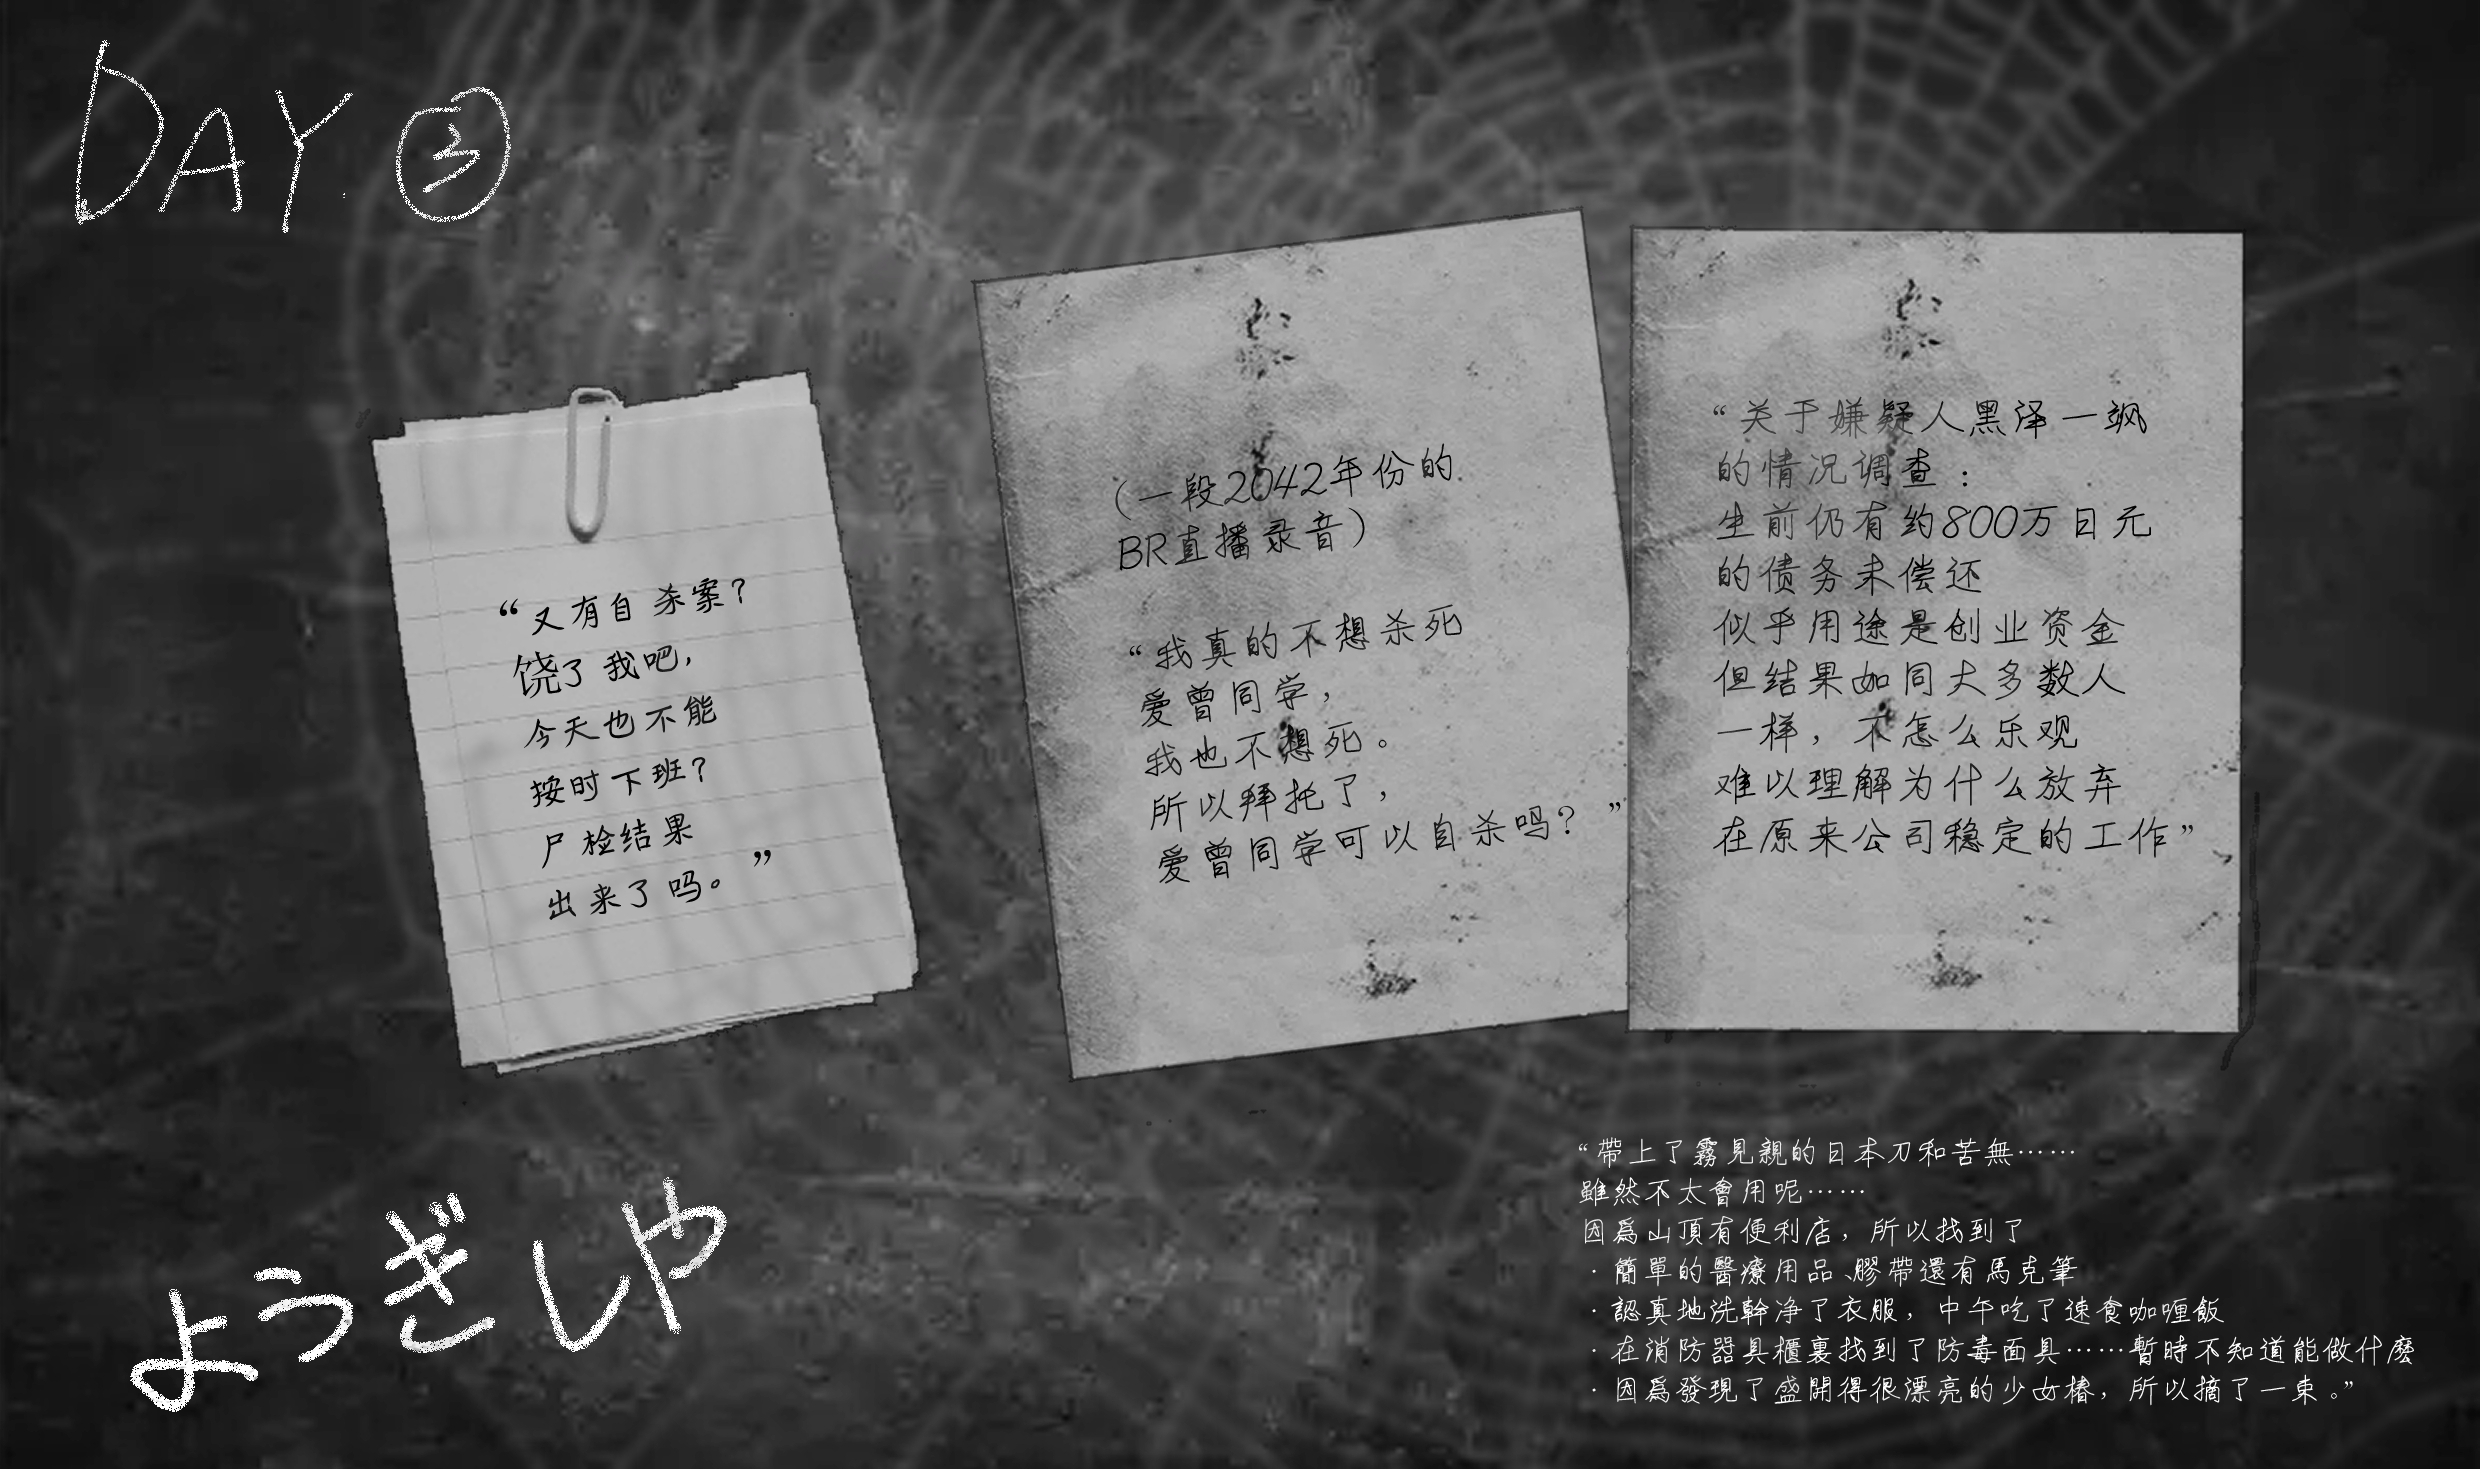 DAY ③
“又有自杀案？
饶了我吧，
今天也不能
按时下班？
尸检结果
出来了吗。”
（一段2042年份的
BR直播录音）
“我真的不想杀死
爱曾同学，
我也不想死。
所以拜托了，
爱曾同学可以自杀吗？”
“关于嫌疑人黑泽一飒
的情况调查：
生前仍有约800万日元
的债务未偿还
似乎用途是创业资金
但结果如同大多数人
一样，不怎么乐观
难以理解为什么放弃
在原来公司稳定的工作”
ようぎしや
“帶上了霧見親的日本刀和苦無……
雖然不太會用呢……
因爲山頂有便利店，所以找到了
·簡單的醫療用品、膠帶還有馬克筆
·認真地洗幹净了衣服，中午吃了速食咖喱飯
·在消防器具櫃裏找到了防毒面具……暫時不知道能做什麽
·因爲發現了盛開得很漂亮的少女椿，所以摘了一束。”